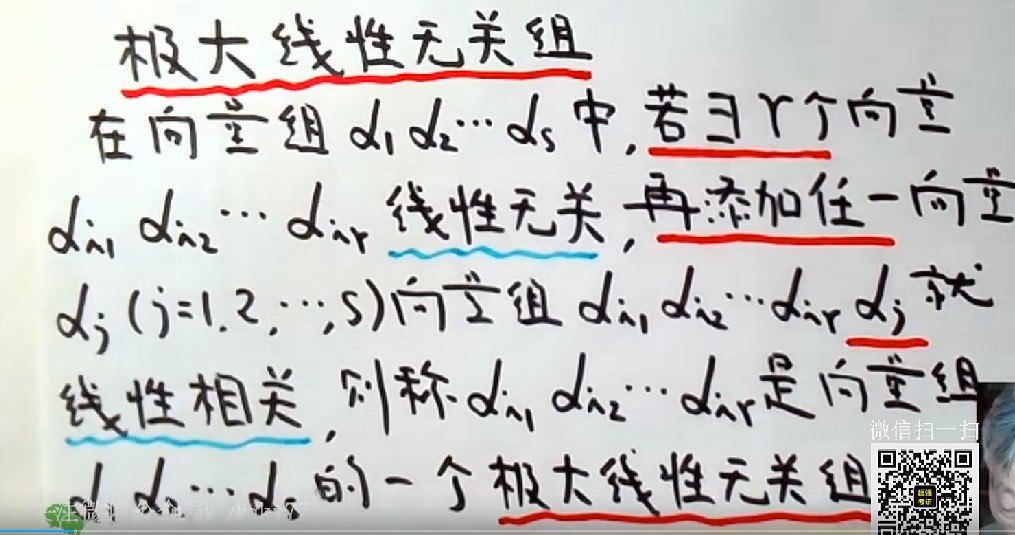 极大线性无关组
在向量组 α₁ α₂ ⋯ αₛ 中,若∃ r个向量
αᵢ₁ αᵢ₂ ⋯ αᵢᵣ 线性无关,再添加任一向量
αⱼ (j=1,2,⋯,s)向量组 αᵢ₁ αᵢ₂ ⋯ αᵢᵣ αⱼ 就
线性相关,则称 αᵢ₁ αᵢ₂ ⋯ αᵢᵣ 是向量组
微信扫一扫
α₁ α₂ ⋯ αₛ 的一个极大线性无关组